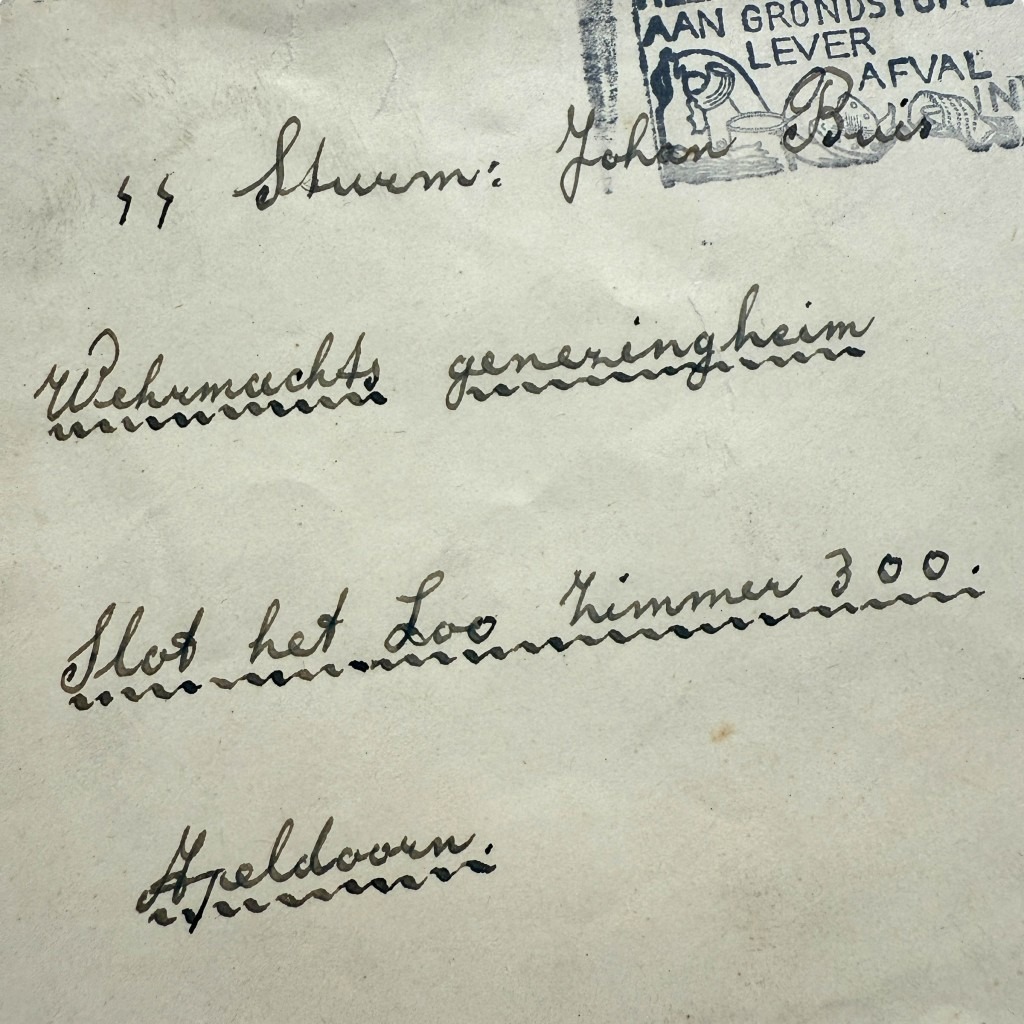 AAN GRONDSTOFFE
LEVER
AFVAL
IN
SS Sturm: Johan Buis
Wehrmachts genezingheim
Slot het Loo Zimmer 300.
Apeldoorn.